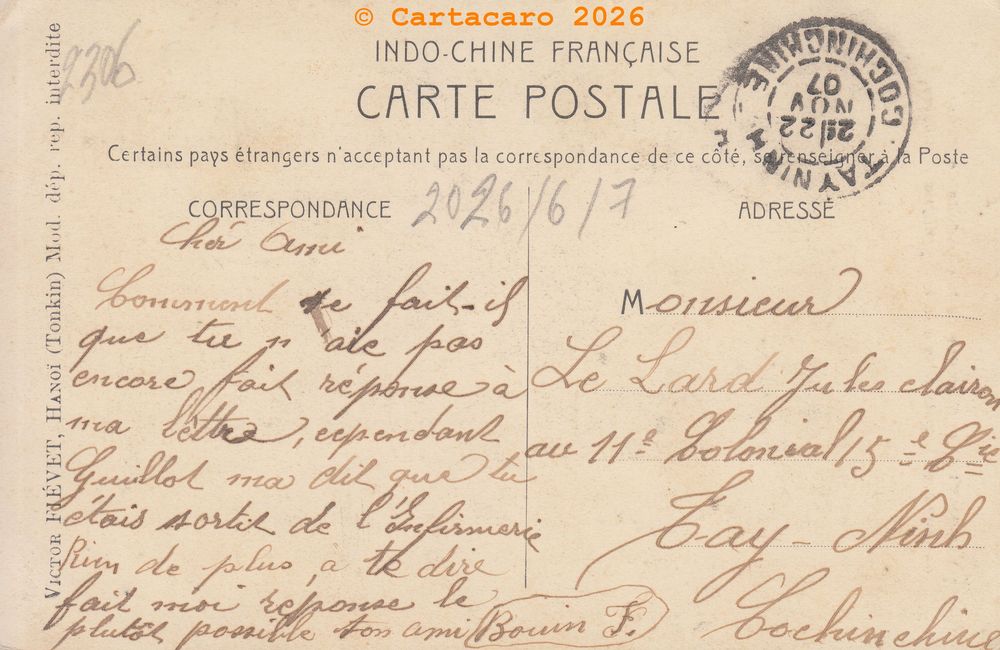 © Cartacaro 2026
2306
INDO-CHINE FRANÇAISE
CARTE POSTALE
Certains pays étrangers n'acceptant pas la correspondance de ce côté, se renseigner à la Poste
TAYNINH
COCHINCHINE
2e/22
NOV
07
CORRESPONDANCE
2026/6/7
ADRESSE
Cher Ami
Comment se fait-il
que tu n'aie pas
encore fait réponse à
ma lettre, cependant
Guillot ma dit que tu
étais sortit de l'Infirmerie
Rien de plus à te dire
fait moi réponse le
plutôt possible ton ami Bouin F.
Monsieur
Le Lard Jules clairon
au 11e Colonial 15e Cie
Tay-Ninh
Cochinchine
VICTOR FIÉVET, HANOÏ (Tonkin) Mod. dép. rep. interdite